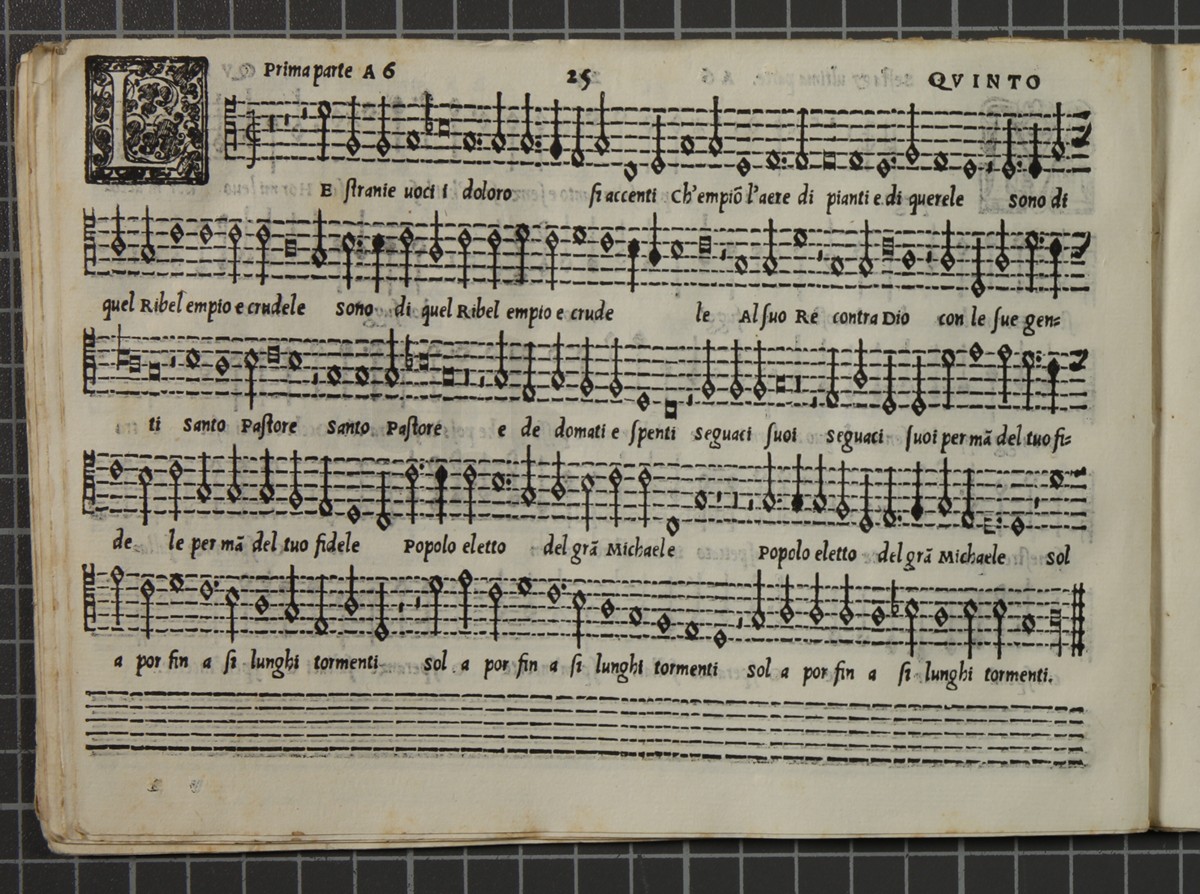 Prima parte A 6 25 QVINTO
LE ſtranie uoci i doloro ſi accenti Ch'empiõ l'aere di pianti e di querele sono di
quel Ribel empio e crudele sono di quel Ribel empio e crude le Al ſuo Re contra Dio con le ſue gen=
ti Santo Paſtore Santo Paſtore e de domati e ſpenti seguaci ſuoi seguaci ſuoi per mã del tuo fi=
de le per mã del tuo fidele Popolo eletto del grã Michaele Popolo eletto del grã Michaele Sol
a por fin a ſi lunghi tormenti sol a por fin a ſi lunghi tormenti sol a por fin a ſi lunghi tormenti.